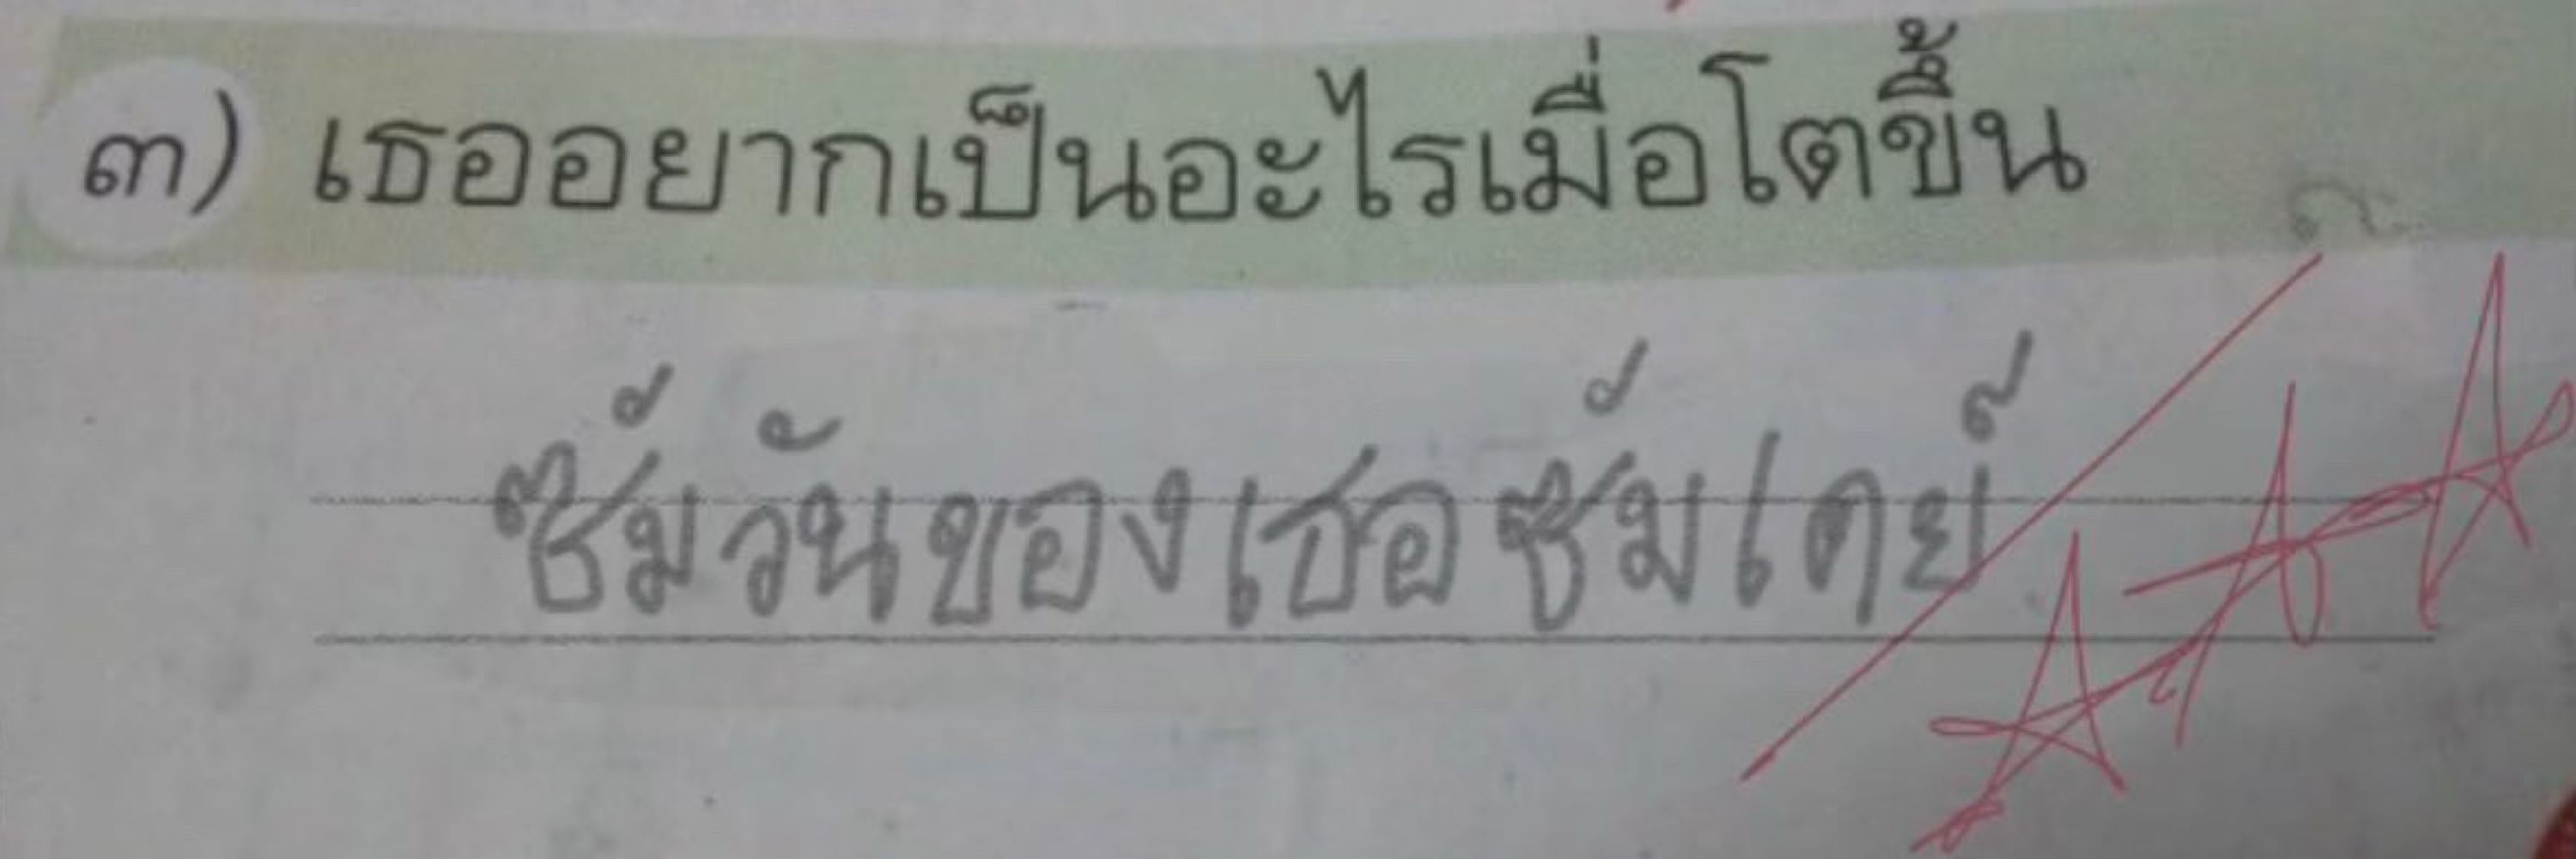 ๓) เธออยากเป็นอะไรเมื่อโตขึ้น
ซัมวันของเธอซัมเดย์